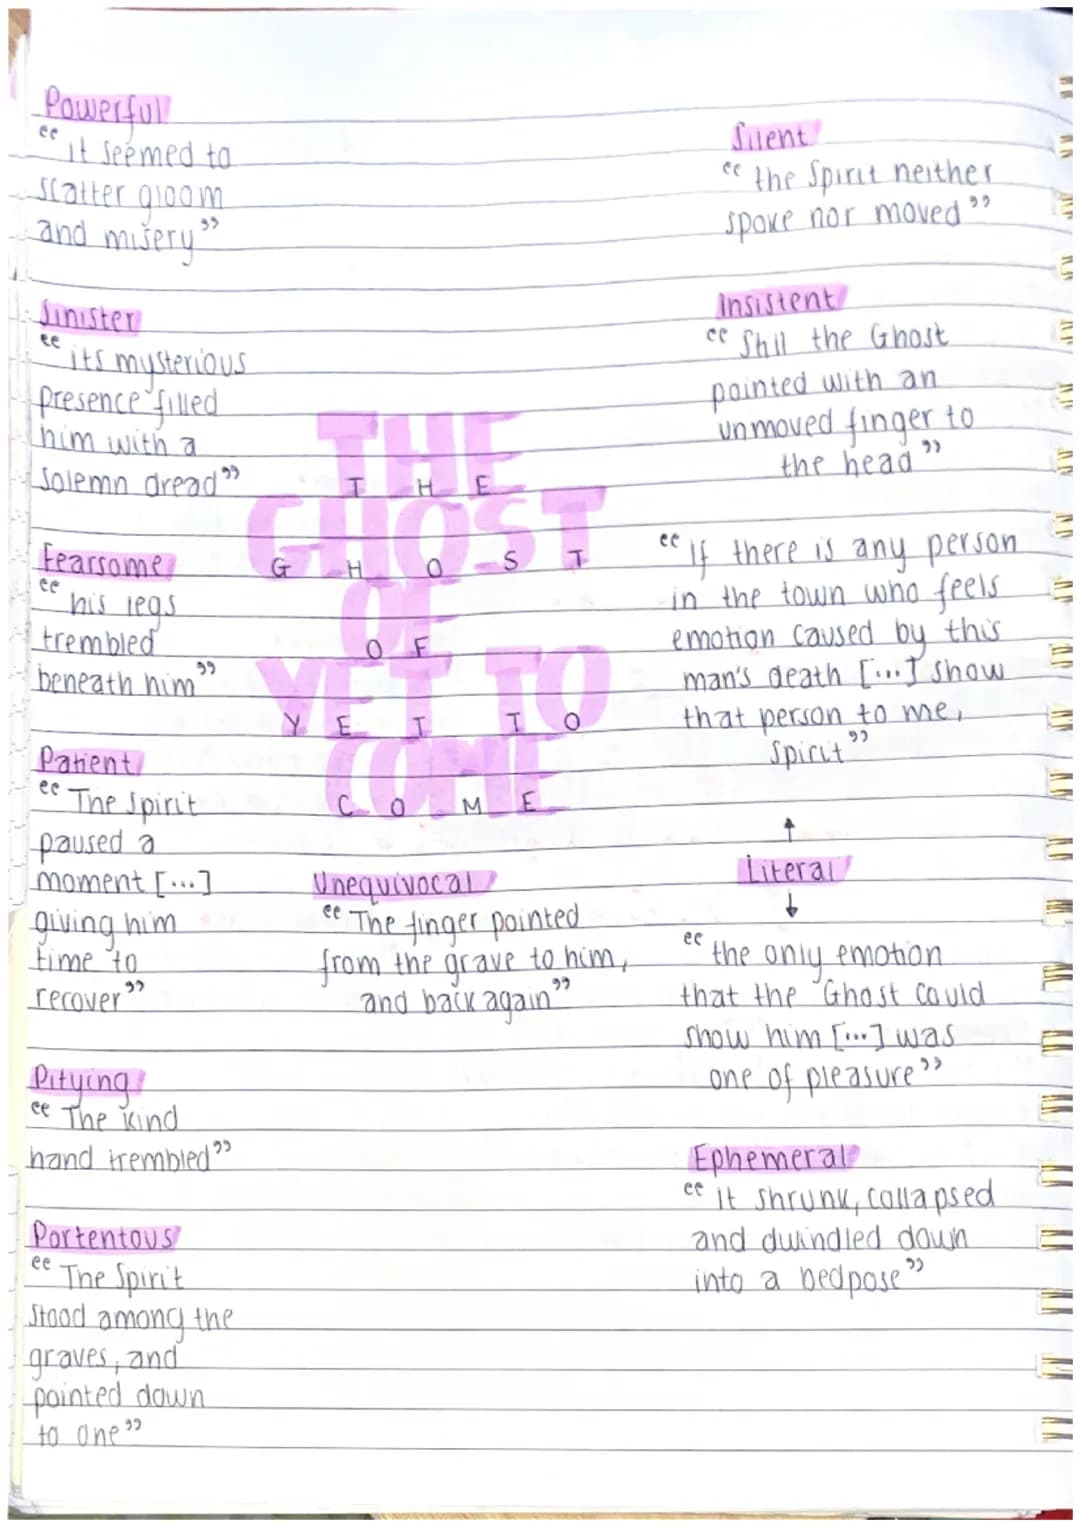 Powerful
“it seemed to
scatter gloom
and misery”
Sinister
“its mysterious
presence filled
him with a
solemn dread”
Fearsome
“his legs
trembled
beneath him”
Patient
“The Spirit
paused a
moment [...]
giving him
time to
recover”
Pitying
“The kind
hand trembled”
Portentous
“The Spirit
stood among the
graves, and
pointed down
to one”
THE
THE
GHOST
GHOST
OF
OF
YET TO
YET TO
COME
COME
Unequivocal
“The finger pointed
from the grave to him,
and back again”
Silent
“the Spirit neither
spoke nor moved”
Insistent
“Still the Ghost
pointed with an
unmoved finger to
the head”
“If there is any person
in the town who feels
emotion caused by this
man's death [...] show
that person to me,
Spirit”
Literal
“the only emotion
that the Ghost could
show him [...] was
one of pleasure”
Ephemeral
“it shrunk, collapsed
and dwindled down
into a bedpose”